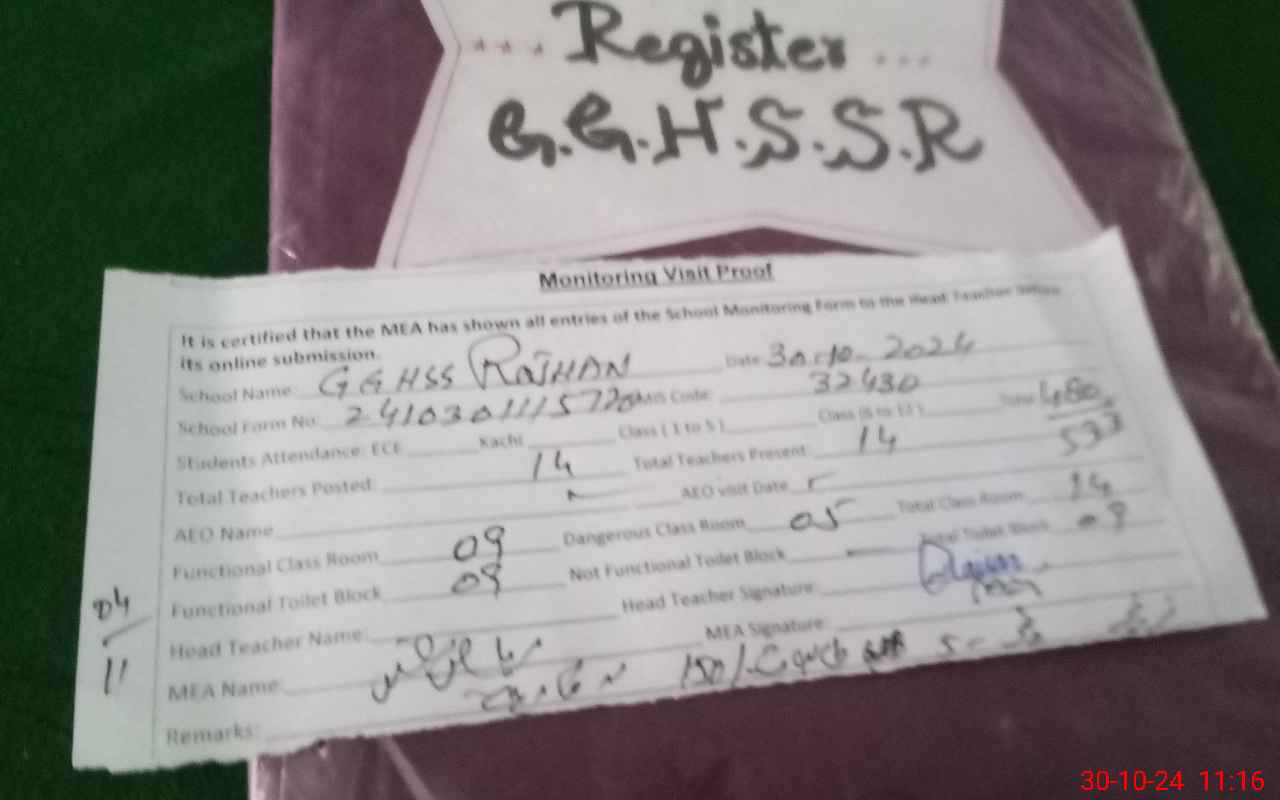 Register
G.G.H.S.S.R
Monitoring Visit Proof
It is certified that the MEA has shown all entries of the School Monitoring Form to the Head Teacher before
its online submission.
School Name: GGHSS RAJHAN Date 30-10-2024
School Form No: Code: 32430
Students Attendance: ECE Kachi Class (1 to 5) Class (6 to 12) Total 480
533
Total Teachers Posted: 14 Total Teachers Present: 14
AEO Name AEO visit Date
Functional Class Room 09 Dangerous Class Room 05 Total Class Room 14
Functional Toilet Block 09 Not Functional Toilet Block Total Toilet Block 09
Head Teacher Name: Head Teacher Signature:
MEA Name: MEA Signature:
Remarks:
04
11
30-10-24 11:16